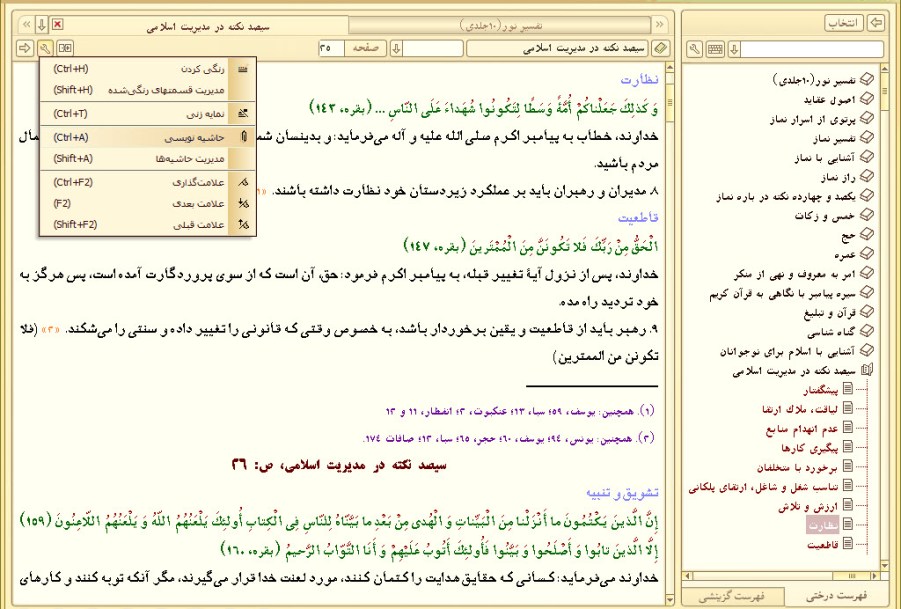 انتخاب
تفسیر نور(۱۰جلدی)
اصول عقاید
پرتوی از اسرار نماز
تفسیر نماز
آشنایی با نماز
راز نماز
یکصد و چهارده نکته در باره نماز
خمس و زکات
حج
عمره
امر به معروف و نهی از منکر
سیره پیامبر با نگاهی به قرآن کریم
قرآن و تبلیغ
گناه شناسی
آشنایی با اسلام برای نوجوانان
سیصد نکته در مدیریت اسلامی
پیشگفتار
لیاقت، ملاک ارتقا
عدم انهدام منابع
پیگیری کارها
برخورد با متخلفان
تناسب شغل و شاغل، ارتقای پلکانی
ارزش و تلاش
نظارت
قاطعیت
فهرست درختی
فهرست گزینشی
تفسیر نور(۱۰جلدی)
سیصد نکته در مدیریت اسلامی
سیصد نکته در مدیریت اسلامی
صفحه
۳۵
رنگی کردن (Ctrl+H)
مدیریت قسمتهای رنگی‌شده (Shift+H)
نمایه زنی (Ctrl+T)
حاشیه نویسی (Ctrl+A)
مدیریت حاشیه‌ها (Shift+A)
علامت‌گذاری (Ctrl+F2)
علامت بعدی (F2)
علامت قبلی (Shift+F2)
نظارت
وَ كَذلِكَ جَعَلْناكُمْ أُمَّةً وَسَطًا لِتَكُونُوا شُهَداءَ عَلَى النَّاسِ ... (بقره، ۱۴۳)
خداوند، خطاب به پیامبر اکرم صلی الله علیه و آله می‌فرماید: و بدینسان شما
مردم باشید.
۸. مدیران و رهبران باید بر عملکرد زیردستان خود نظارت داشته باشند.
قاطعیت
الْحَقُّ مِنْ رَبِّكَ فَلا تَكُونَنَّ مِنَ الْمُمْتَرِينَ (بقره، ۱۴۷)
خداوند، پس از نزول آیهٔ تغییر قبله، به پیامبر اکرم فرمود: حق، آن است که از سوی پروردگارت آمده است، پس هرگز به
خود تردید راه مده.
۹. رهبر باید از قاطعیت و یقین برخوردار باشد، به خصوص وقتی که قانونی را تغییر داده و سنتی را می‌شکند. «۲» (فلا
تكونن من الممترين)
(۱). همچنین: یوسف، ۵۹؛ سبا، ۱۳؛ عنکبوت، ۳؛ انفطار، ۱۱ و ۱۲
(۲). همچنین: یونس، ۹۴؛ یوسف، ۶۰؛ حجر، ۶۵؛ سبا، ۱۲؛ صافات ۱۷۴.
سیصد نکته در مدیریت اسلامی، ص: ۳۶
تشویق و تنبیه
إِنَّ الَّذِينَ يَكْتُمُونَ ما أَنْزَلْنا مِنَ الْبَيِّناتِ وَ الْهُدى‏ مِنْ بَعْدِ ما بَيَّنَّاهُ لِلنَّاسِ فِي الْكِتابِ أُولئِكَ يَلْعَنُهُمُ اللَّهُ وَ يَلْعَنُهُمُ اللَّاعِنُونَ (۱۵۹)
إِلَّا الَّذِينَ تابُوا وَ أَصْلَحُوا وَ بَيَّنُوا فَأُولئِكَ أَتُوبُ عَلَيْهِمْ وَ أَنَا التَّوَّابُ الرَّحِيمُ (بقره، ۱۶۰)
خداوند می‌فرماید: کسانی که حقایق هدایت را کتمان کنند، مورد لعنت خدا قرار می‌گیرند، مگر آنکه توبه کنند و کارهای